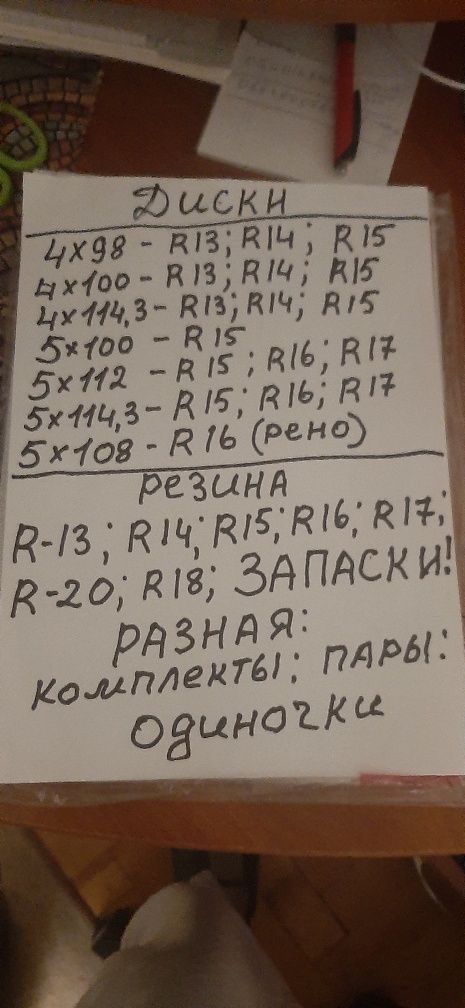 Диски
4x98 - R13; R14; R15
4x100 - R13; R14; R15
4x114,3 - R13; R14; R15
5x100 - R15
5x112 - R15; R16; R17
5x114,3 - R15; R16; R17
5x108 - R16 (рено)
РЕЗИНА
R-13; R14; R15; R16; R17;
R-20; R18; ЗАПАСКИ!
РАЗНАЯ:
комплекты; ПАРЫ:
одиночки